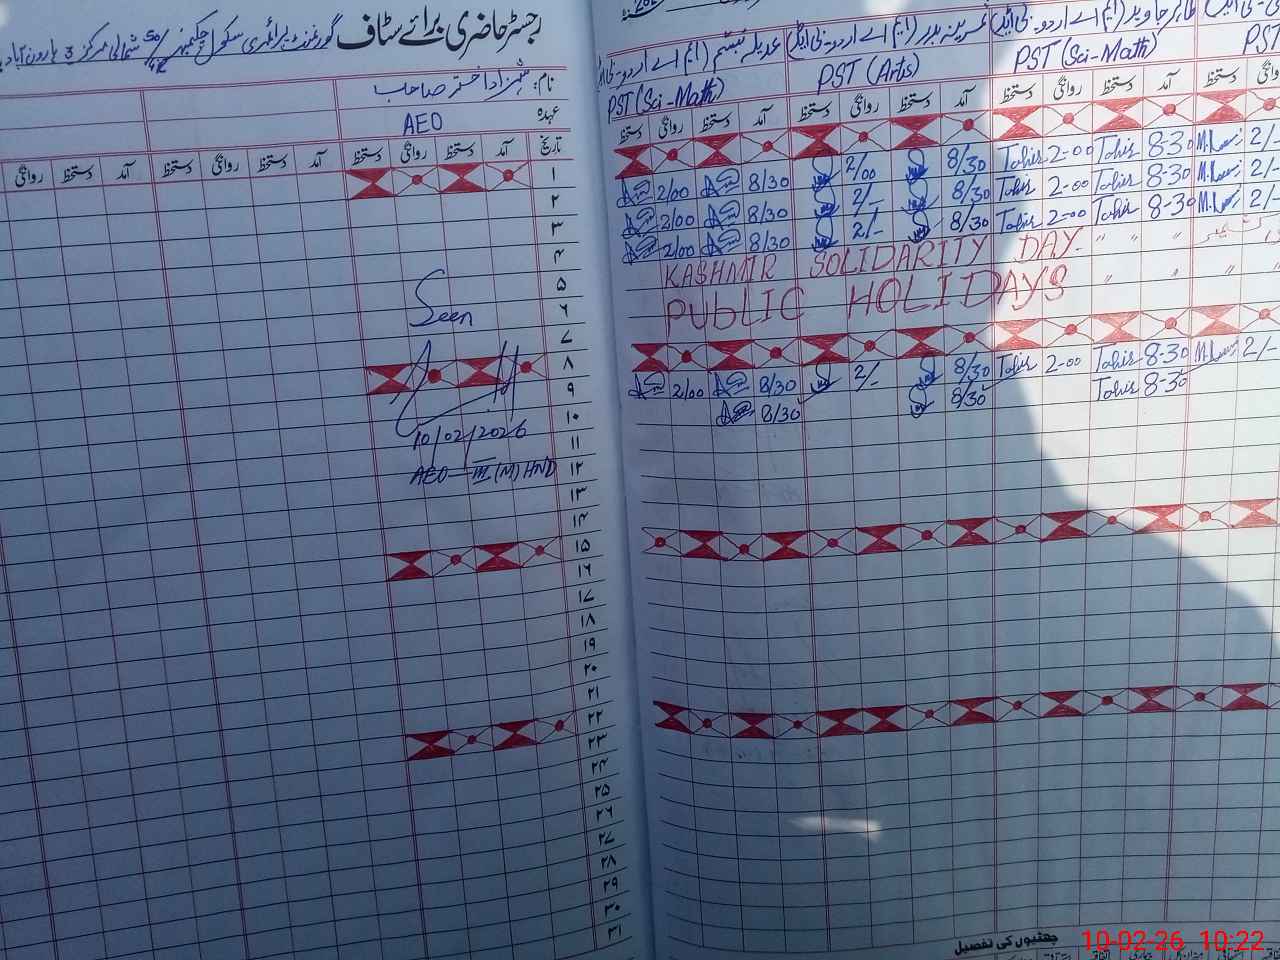 رجسٹر حاضری برائے سٹاف گورنمنٹ پرائمری سکول چکنمبر 50/4R شمالی مرکز 3 ہارون آباد
نام: شہزاد اختر صاحب
عہدہ AEO
تاریخ آمد دستخط روانگی دستخط آمد دستخط روانگی دستخط آمد دستخط روانگی
۱
۲
۳
۴
۵
۶
۷
۸
۹
۱۰
۱۱
۱۲
۱۳
۱۴
۱۵
۱۶
۱۷
۱۸
۱۹
۲۰
۲۱
۲۲
۲۳
۲۴
۲۵
۲۶
۲۷
۲۸
۲۹
۳۰
۳۱
Seen
10/02/2026
AEO-III (M) HND
طاہر جاوید (ایم اے اردو۔ بی ایڈ) بدر (ایم اے اردو۔ بی ایڈ) عدیلہ تبسم (ایم اے اردو۔ بی ایڈ)
PST (Sci-Math) PST (Arts) PST (Sci-Math) PST
دستخط روانگی دستخط آمد دستخط روانگی دستخط آمد دستخط روانگی دستخط آمد دستخط روانگی
2/00 8/30 2/00 8/30 Tahir 2-00 Tahir 8-30 2/-
2/00 8/30 2/- 8/30 Tahir 2-00 Tahir 8-30 2/-
2/00 8/30 2/- 8/30 Tahir 2-00 Tahir 8-30 2/-
KASHMIR SOLIDARITY DAY " " "
PUBLIC HOLIDAYS " " " " "
2/00 8/30 2/- 8/30 Tahir 2-00 Tahir 8-30 2/-
8/30 8/30 Tahir 8-30
چھٹیوں کی تفصیل
10-02-26 10:22